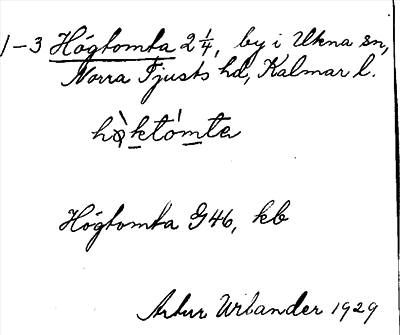 1-3 Högtomta 2 1/4, by i Ukna sn,
Norra Tjusts hd, Kalmar l.
Högtomta G46, kb
Artur Wibander 1929